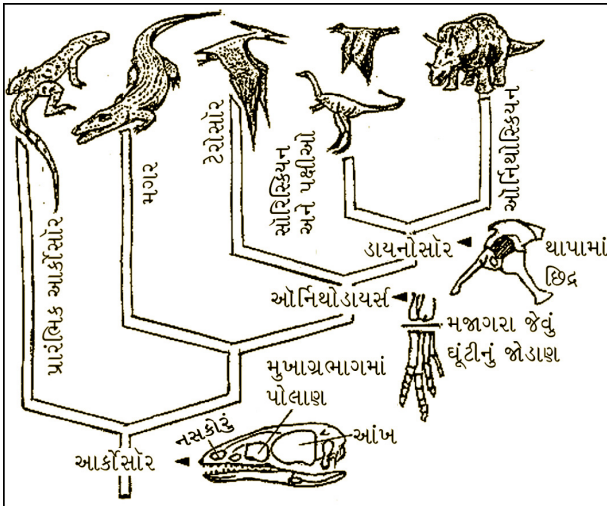 પ્રારંભિક આર્કોસૉર
મગર
ટેરોસૉર
સૉરિસ્કિયન
અને પક્ષીઓ
ઑર્નિથોસ્કિયન
ડાયનોસૉર
થાપામાં
છિદ્ર
ઑર્નિથોડાયર્સ
મજાગરા જેવું
ઘૂંટીનું જોડાણ
મુખાગ્રભાગમાં
પોલાણ
નસકોરું
આંખ
આર્કોસૉર